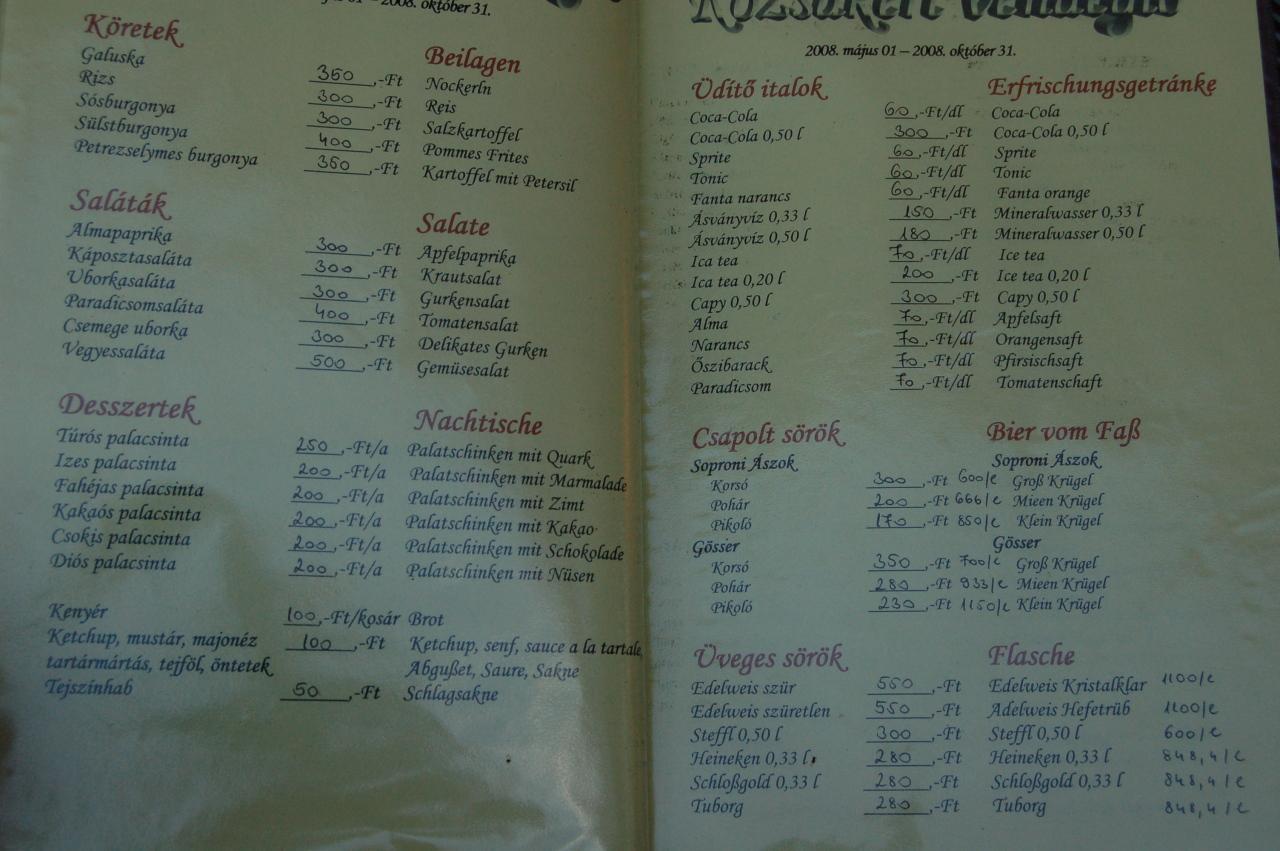 01 – 2008. október 31.
Köretek Beilagen
Galuska 350,-Ft Nockerln
Rizs 300,-Ft Reis
Sósburgonya 300,-Ft Salzkartoffel
Sülstburgonya 400,-Ft Pommes Frites
Petrezselymes burgonya 350,-Ft Kartoffel mit Petersil
Saláták Salate
Almapaprika 300,-Ft Apfelpaprika
Káposztasaláta 300,-Ft Krautsalat
Uborkasaláta 300,-Ft Gurkensalat
Paradicsomsaláta 400,-Ft Tomatensalat
Csemege uborka 300,-Ft Delikates Gurken
Vegyessaláta 500,-Ft Gemüsesalat
Desszertek Nachtische
Túrós palacsinta 250,-Ft/a Palatschinken mit Quark
Izes palacsinta 200,-Ft/a Palatschinken mit Marmalade
Fahéjas palacsinta 200,-Ft/a Palatschinken mit Zimt
Kakaós palacsinta 200,-Ft/a Palatschinken mit Kakao
Csokis palacsinta 200,-Ft/a Palatschinken mit Schokolade
Diós palacsinta 200,-Ft/a Palatschinken mit Nüsen
Kenyér 100,-Ft/kosár Brot
Ketchup, mustár, majonéz 100,-Ft Ketchup, senf, sauce a la tartale,
tartármártás, tejföl, öntetek Abgußet, Saure, Sakne
Tejszínhab 50,-Ft Schlagsakne
Rózsakert Vendéglő
2008. május 01 – 2008. október 31.
Üdítő italok Erfrischungsgetränke
Coca-Cola 60,-Ft/dl Coca-Cola
Coca-Cola 0,50 l 300,-Ft Coca-Cola 0,50 l
Sprite 60,-Ft/dl Sprite
Tonic 60,-Ft/dl Tonic
Fanta narancs 60,-Ft/dl Fanta orange
Ásványvíz 0,33 l 150,-Ft Mineralwasser 0,33 l
Ásványvíz 0,50 l 180,-Ft Mineralwasser 0,50 l
Ica tea 70,-Ft/dl Ice tea
Ica tea 0,20 l 200,-Ft Ice tea 0,20 l
Capy 0,50 l 300,-Ft Capy 0,50 l
Alma 70,-Ft/dl Apfelsaft
Narancs 70,-Ft/dl Orangensaft
Őszibarack 70,-Ft/dl Pfirsischsaft
Paradicsom 70,-Ft/dl Tomatenschaft
Csapolt sörök Bier vom Faß
Soproni Ászok Soproni Ászok
Korsó 300,-Ft 600/l Groß Krügel
Pohár 200,-Ft 666/l Mieen Krügel
Pikoló 170,-Ft 850/l Klein Krügel
Gösser Gösser
Korsó 350,-Ft 700/l Groß Krügel
Pohár 280,-Ft 933/l Mieen Krügel
Pikoló 230,-Ft 1150/l Klein Krügel
Üveges sörök Flasche
Edelweis szür 550,-Ft Edelweis Kristalklar 1100/l
Edelweis szüretlen 550,-Ft Adelweis Hefetrüb 1100/l
Steffl 0,50 l 300,-Ft Steffl 0,50 l 600/l
Heineken 0,33 l 280,-Ft Heineken 0,33 l 848,4/l
Schloßgold 0,33 l 280,-Ft Schloßgold 0,33 l 848,4/l
Tuborg 280,-Ft Tuborg 848,4/l